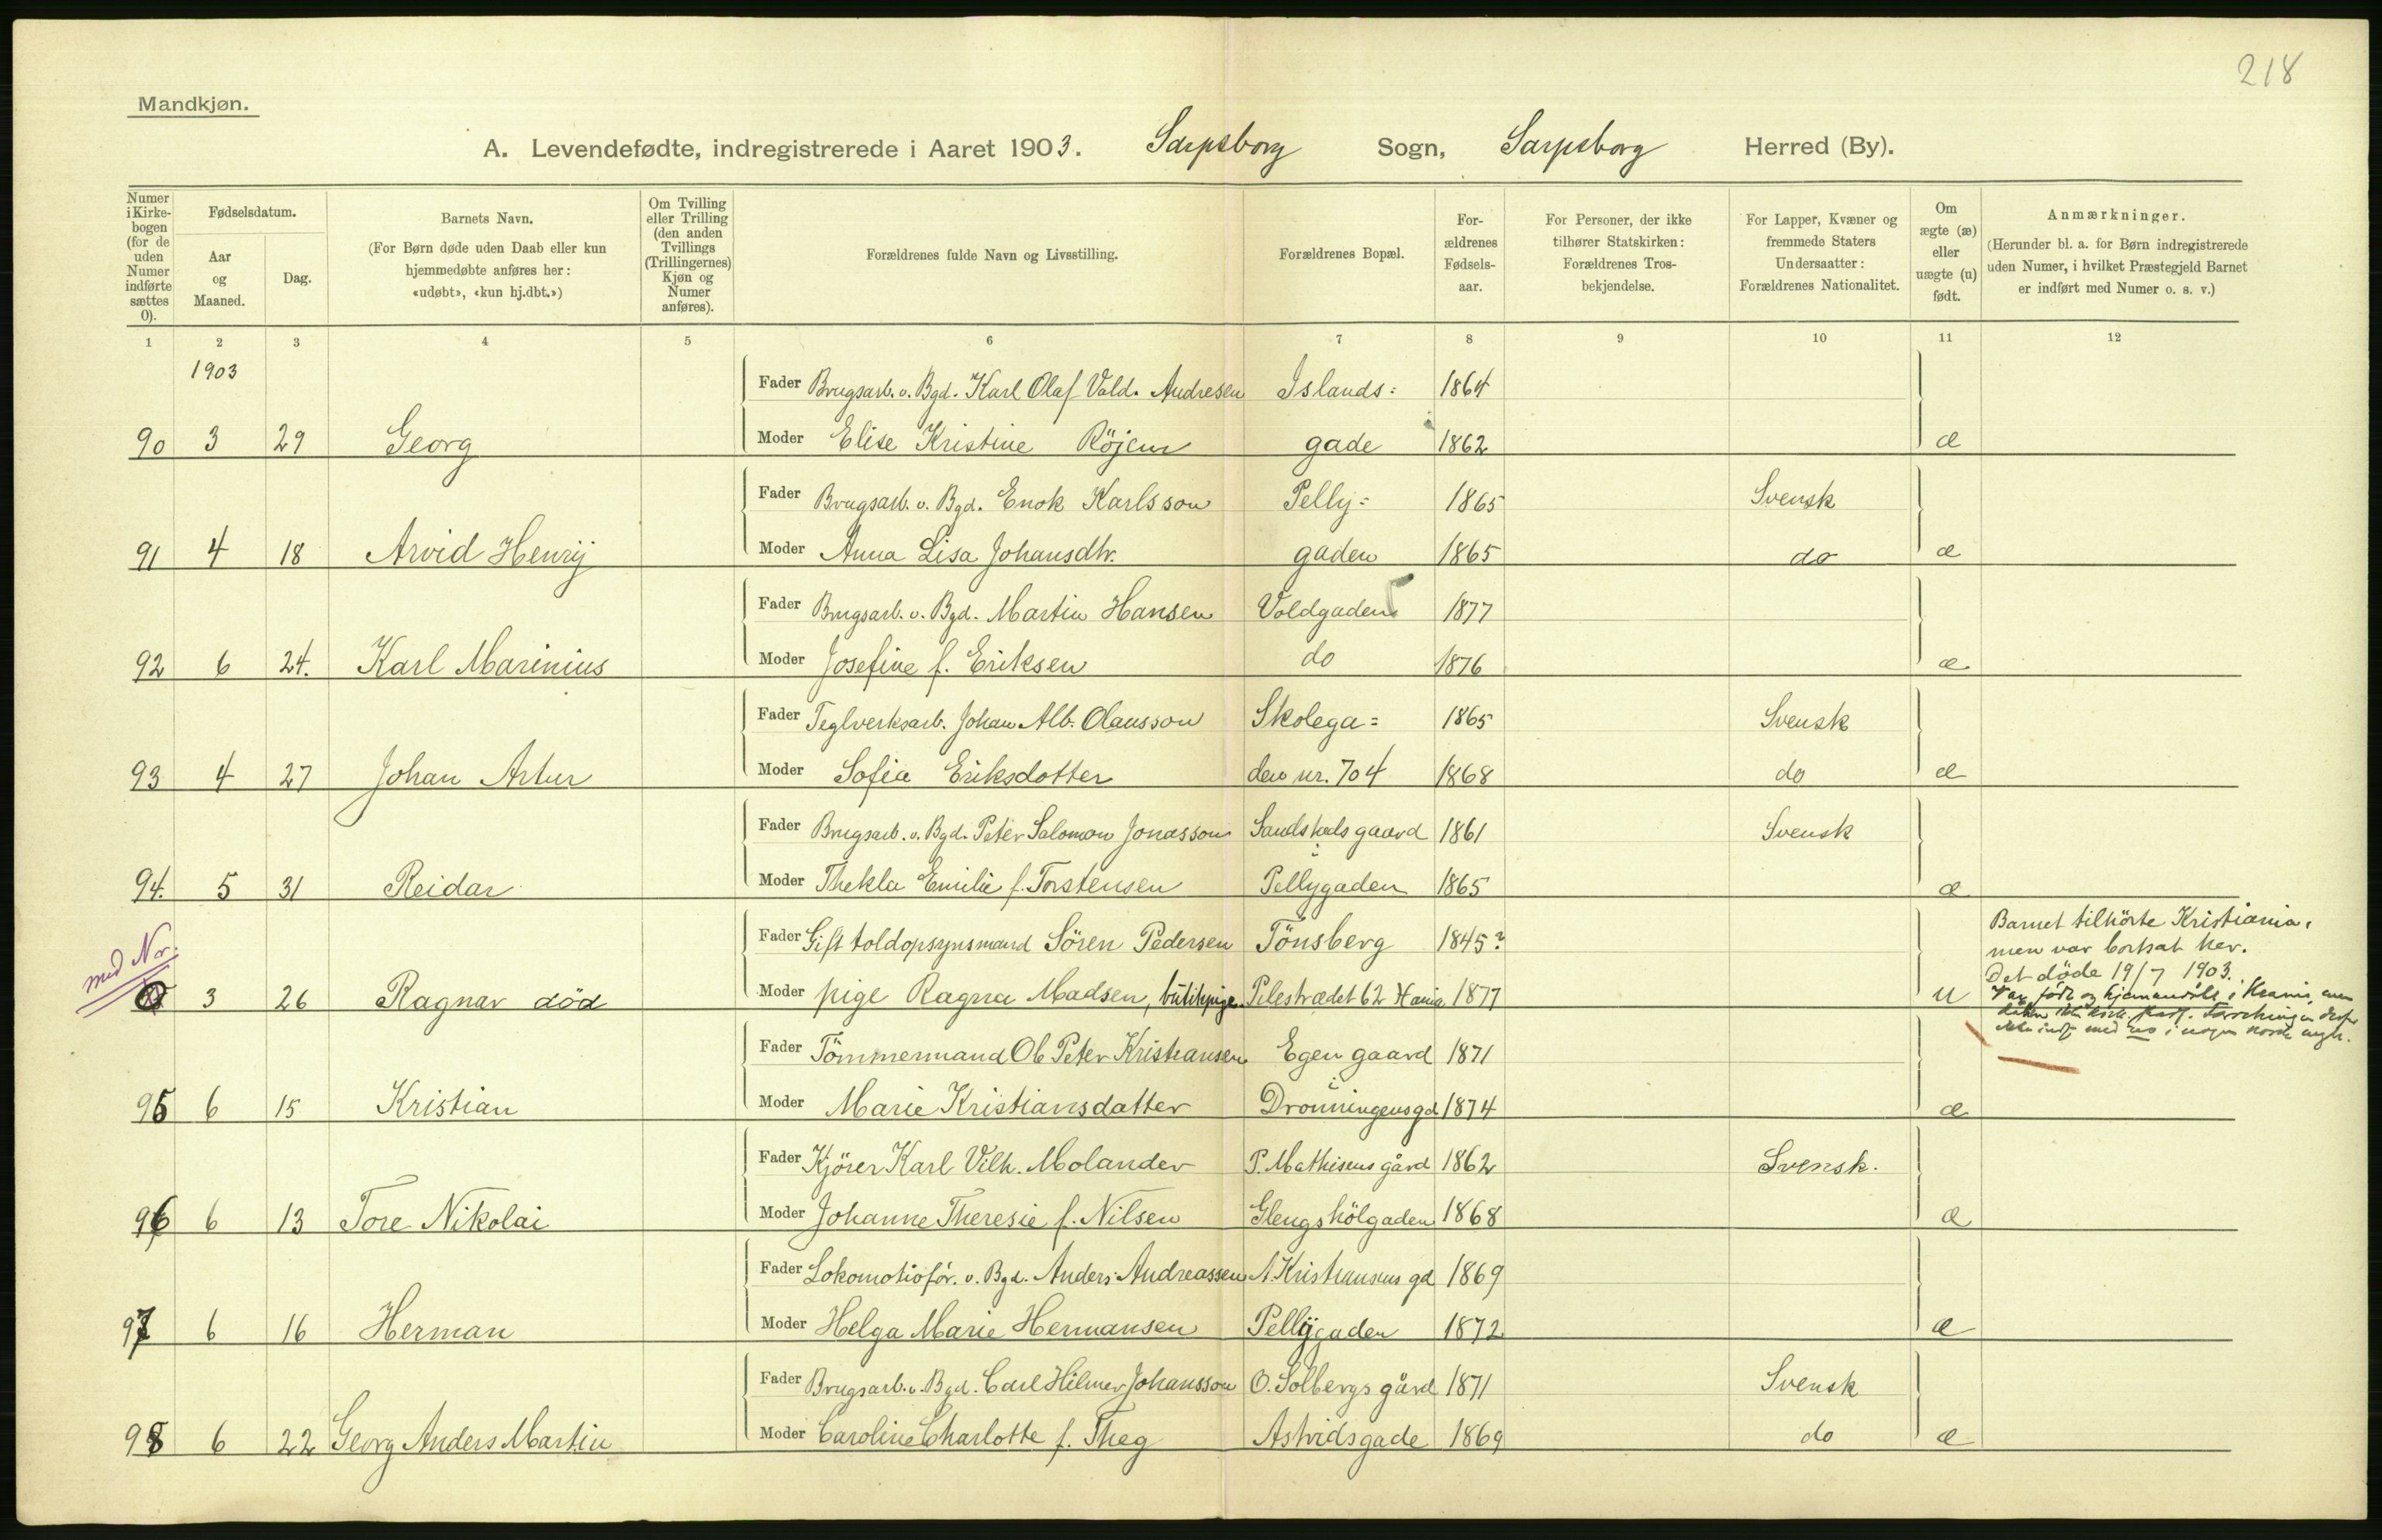 218
Mandkjøn.
A. Levendefødte, indregistrerede i Aaret 1903. Sarpsborg Sogn, Sarpsborg Herred (By).
Numer i Kirkebogen (for de uden Numer indførte sættes 0).
Fødselsdatum.
Aar og Maaned.
Dag.
Barnets Navn.
(For Børn døde uden Daab eller kun hjemmedøbte anføres her: «udøbt», «kun hj.dbt.»)
Om Tvilling eller Trilling (den anden Tvillings (Trillingernes) Kjøn og Numer anføres).
Forældrenes fulde Navn og Livsstilling.
Forældrenes Bopæl.
For-ældrenes Fødsels-aar.
For Personer, der ikke tilhører Statskirken: Forældrenes Tros-bekjendelse.
For Lapper, Kvæner og fremmede Staters Undersaatter: Forældrenes Nationalitet.
Om ægte (æ) eller uægte (u) født.
Anmærkninger.
(Herunder bl. a. for Børn indregistrerede uden Numer, i hvilket Præstegjeld Barnet er indført med Numer o. s. v.)
1 2 3 4 5 6 7 8 9 10 11 12
1903
Fader Brugsarb. v. Bgd. Karl Olaf Vald. Andresen Islands= 1864
90 3 29 Georg Moder Elise Kristine Röjem gade 1862 æ
Fader Brugsarb. v. Bgd. Enok Karlsson Pelly= 1865 Svensk
91 4 18 Arvid Henrij Moder Anna Lisa Johansdtr. gaden 1865 do æ
Fader Brugsarb. v. Bgd. Martin Hansen Voldgaden 1877
92 6 24. Karl Marinius Moder Josefine f. Eriksen do 1876 æ
Fader Teglverksarb. Johan Alb. Olausson Skolega= 1865 Svensk
93 4 27 Johan Artur Moder Sofia Eriksdotter den nr. 704 1868 do æ
Fader Brugsarb. v. Bgd. Peter Salomon Jonasson gaard 1861 Svensk
94. 5 31 Reidar Moder Thekla Emilie f. Torstensen Pellygaden 1865 æ
med Nr.
Fader Gift toldopsynsmand Sören Pedersen Tönsberg 1845?
Barnet tilhörte Kristiania,
men var bortsat her.
Det døde 19/7 1903.
0 3 26 Ragnar död Moder pige Ragna Madsen, butikpige Pilestrædet 62 Kania 1877 u
Var født og i
Fader Tömmermand Ole Peter Kristiansen Egen gaard 1871
95 6 15 Kristian Moder Marie Kristiansdatter Dronningensgd 1874 æ
Fader Kjörer Karl Vilh. Molander P. Mathisens gård 1862 Svensk.
96 6 13 Tore Nikolai Moder Johanne Theresie f. Nilsen Glengshölgaden 1868 æ
Fader Lokomotivför. v. Bgd. Anders Andreassen A. Kristiansens gd 1869
97 6 16 Herman Moder Helga Marie Hermansen Pellygaden 1872 æ
Fader Brugsarb. v. Bgd. Carl Hilmer Johansson O. Solbergs gård 1871 Svensk
98 6 22 Georg Anders Martin Moder Caroline Charlotte f. Theg Astridsgade 1869 do æ